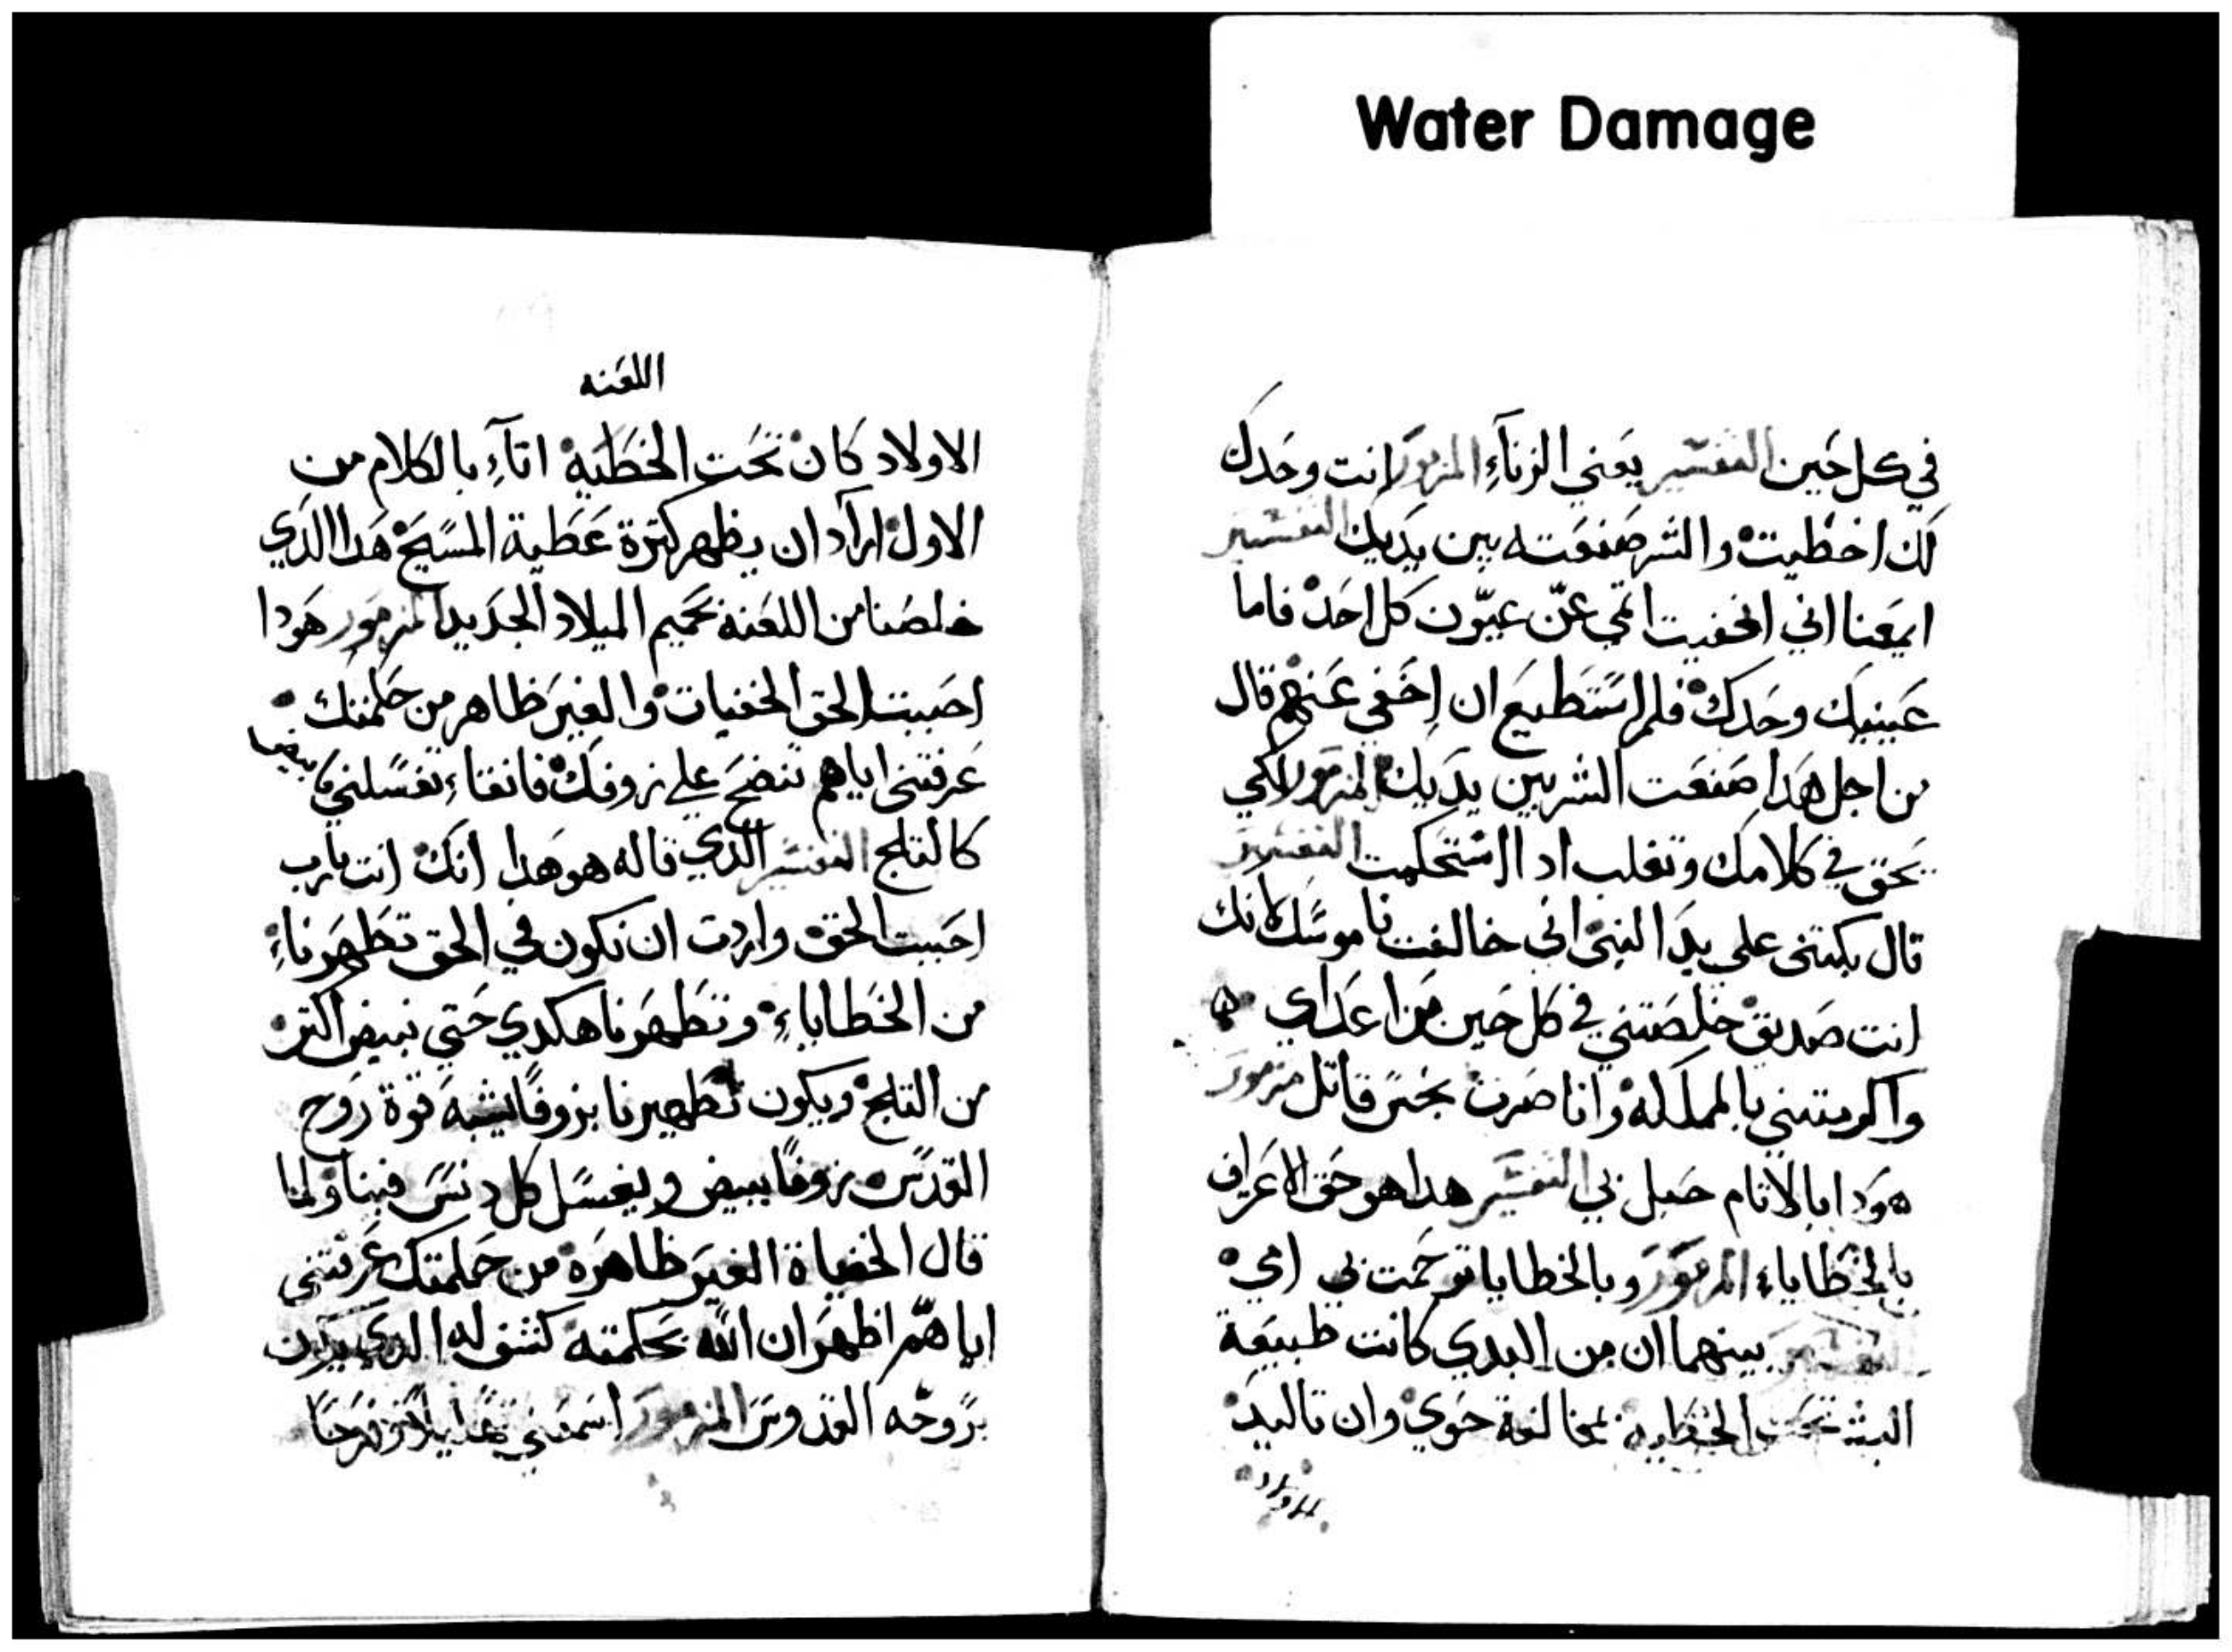 Water Damage
في كل حين التفسير يعني الزناء المزمور انت وحدك
لك اخطيت والشر صنعته بين يديك التفسير
ايمعنا اني اخفيت اثمي عن عيون كل احد فاما
عينيك وحدك فلم استطيع ان اخفي عنهم قال
من اجل هدا صنعت الشر بين يديك المزمور لاكي
تحق في كلامك وتغلب ادا استحكمت التفسير
قال بكتني على يد النبي اني خالفت ناموسك لانك
انت صديق خلصتني في كل حين من اعداي
واكرمتني بالمملكه وانا صرت قاتل مزمور
هودا بالاتام حبل بي التفسير هدا هو حق الاعراف
بالخطاياء المزمور وبالخطايا توحمت بي امي
التفسير بينهما ان من البدي كانت طبيعة
البشر تحت الخطيه بمخالفة حوي وان تاليد
الاولاد
اللعنه
الاولاد كان تحت الخطية اتاء بالكلام من
الاول اراد ان يظهر كترة عطية المسيح هدا الدي
خلصنا من اللعنه بحميم الميلاد الجديد المزمور هودا
احببت الحق الخفيات والغير ظاهر من حكمتك
عرفتني اياهم تنضح علي زوفك فانقاء تغسلني فابيض
كالتلج التفسير الدي قاله هو هدا انك انت يارب
احببت الحق واردت ان نكون في الحق تطهرناء
من الخطاياء وتطهرنا هكدي حتي نبيض اكتر
من التلج ويكون تطهيرنا بزوفا يشبه قوة روح
القدس زوفا يبيض ويغسل كل دنس فينا ولما
قال الخفياة الغير ظاهره من حكمتك عرفتني
اياهم اظهر ان الله بحكمته كشف له الدي يكون
بروحه القدوس المزمور اسمعني وفرحا